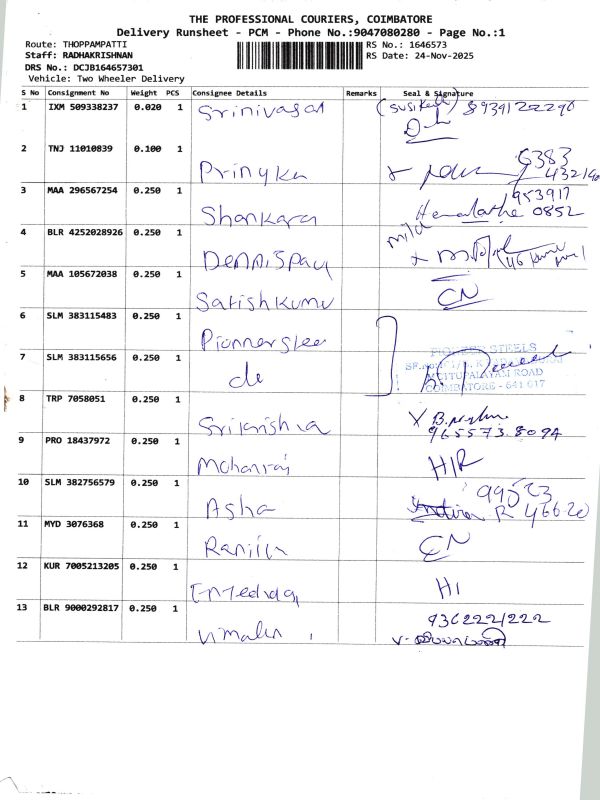 THE PROFESSIONAL COURIERS, COIMBATORE
Delivery Runsheet - PCM - Phone No.:9047080280 - Page No.:1
Route: THOPPAMPATTI RS No.: 1646573
Staff: RADHAKRISHNAN RS Date: 24-Nov-2025
DRS No.: DCJB164657301
Vehicle: Two Wheeler Delivery
S No Consignment No Weight PCS Consignee Details Remarks Seal & Signature
1 IXM 509338237 0.020 1 Srinivasal 8939122296
2 TNJ 11010839 0.100 1 Prinyka 6383
3 MAA 296567254 0.250 1 Shankara 953917
Hemalathe 0852
4 BLR 4252028926 0.250 1 Dennispaul
5 MAA 105672038 0.250 1 Satishkumar CN
6 SLM 383115483 0.250 1 Pionnersteel
7 SLM 383115656 0.250 1 do
PIONEER STEELS
COIMBATORE - 641 017
8 TRP 7058051 0.250 1 Srikrishna
9655738094
9 PRO 18437972 0.250 1 Mohanraj H/R
10 SLM 382756579 0.250 1 Asha 99523
R 46620
11 MYD 3076368 0.250 1 CN
12 KUR 7005213205 0.250 1 H1
13 BLR 9000292817 0.250 1 Vimalan 936222/222